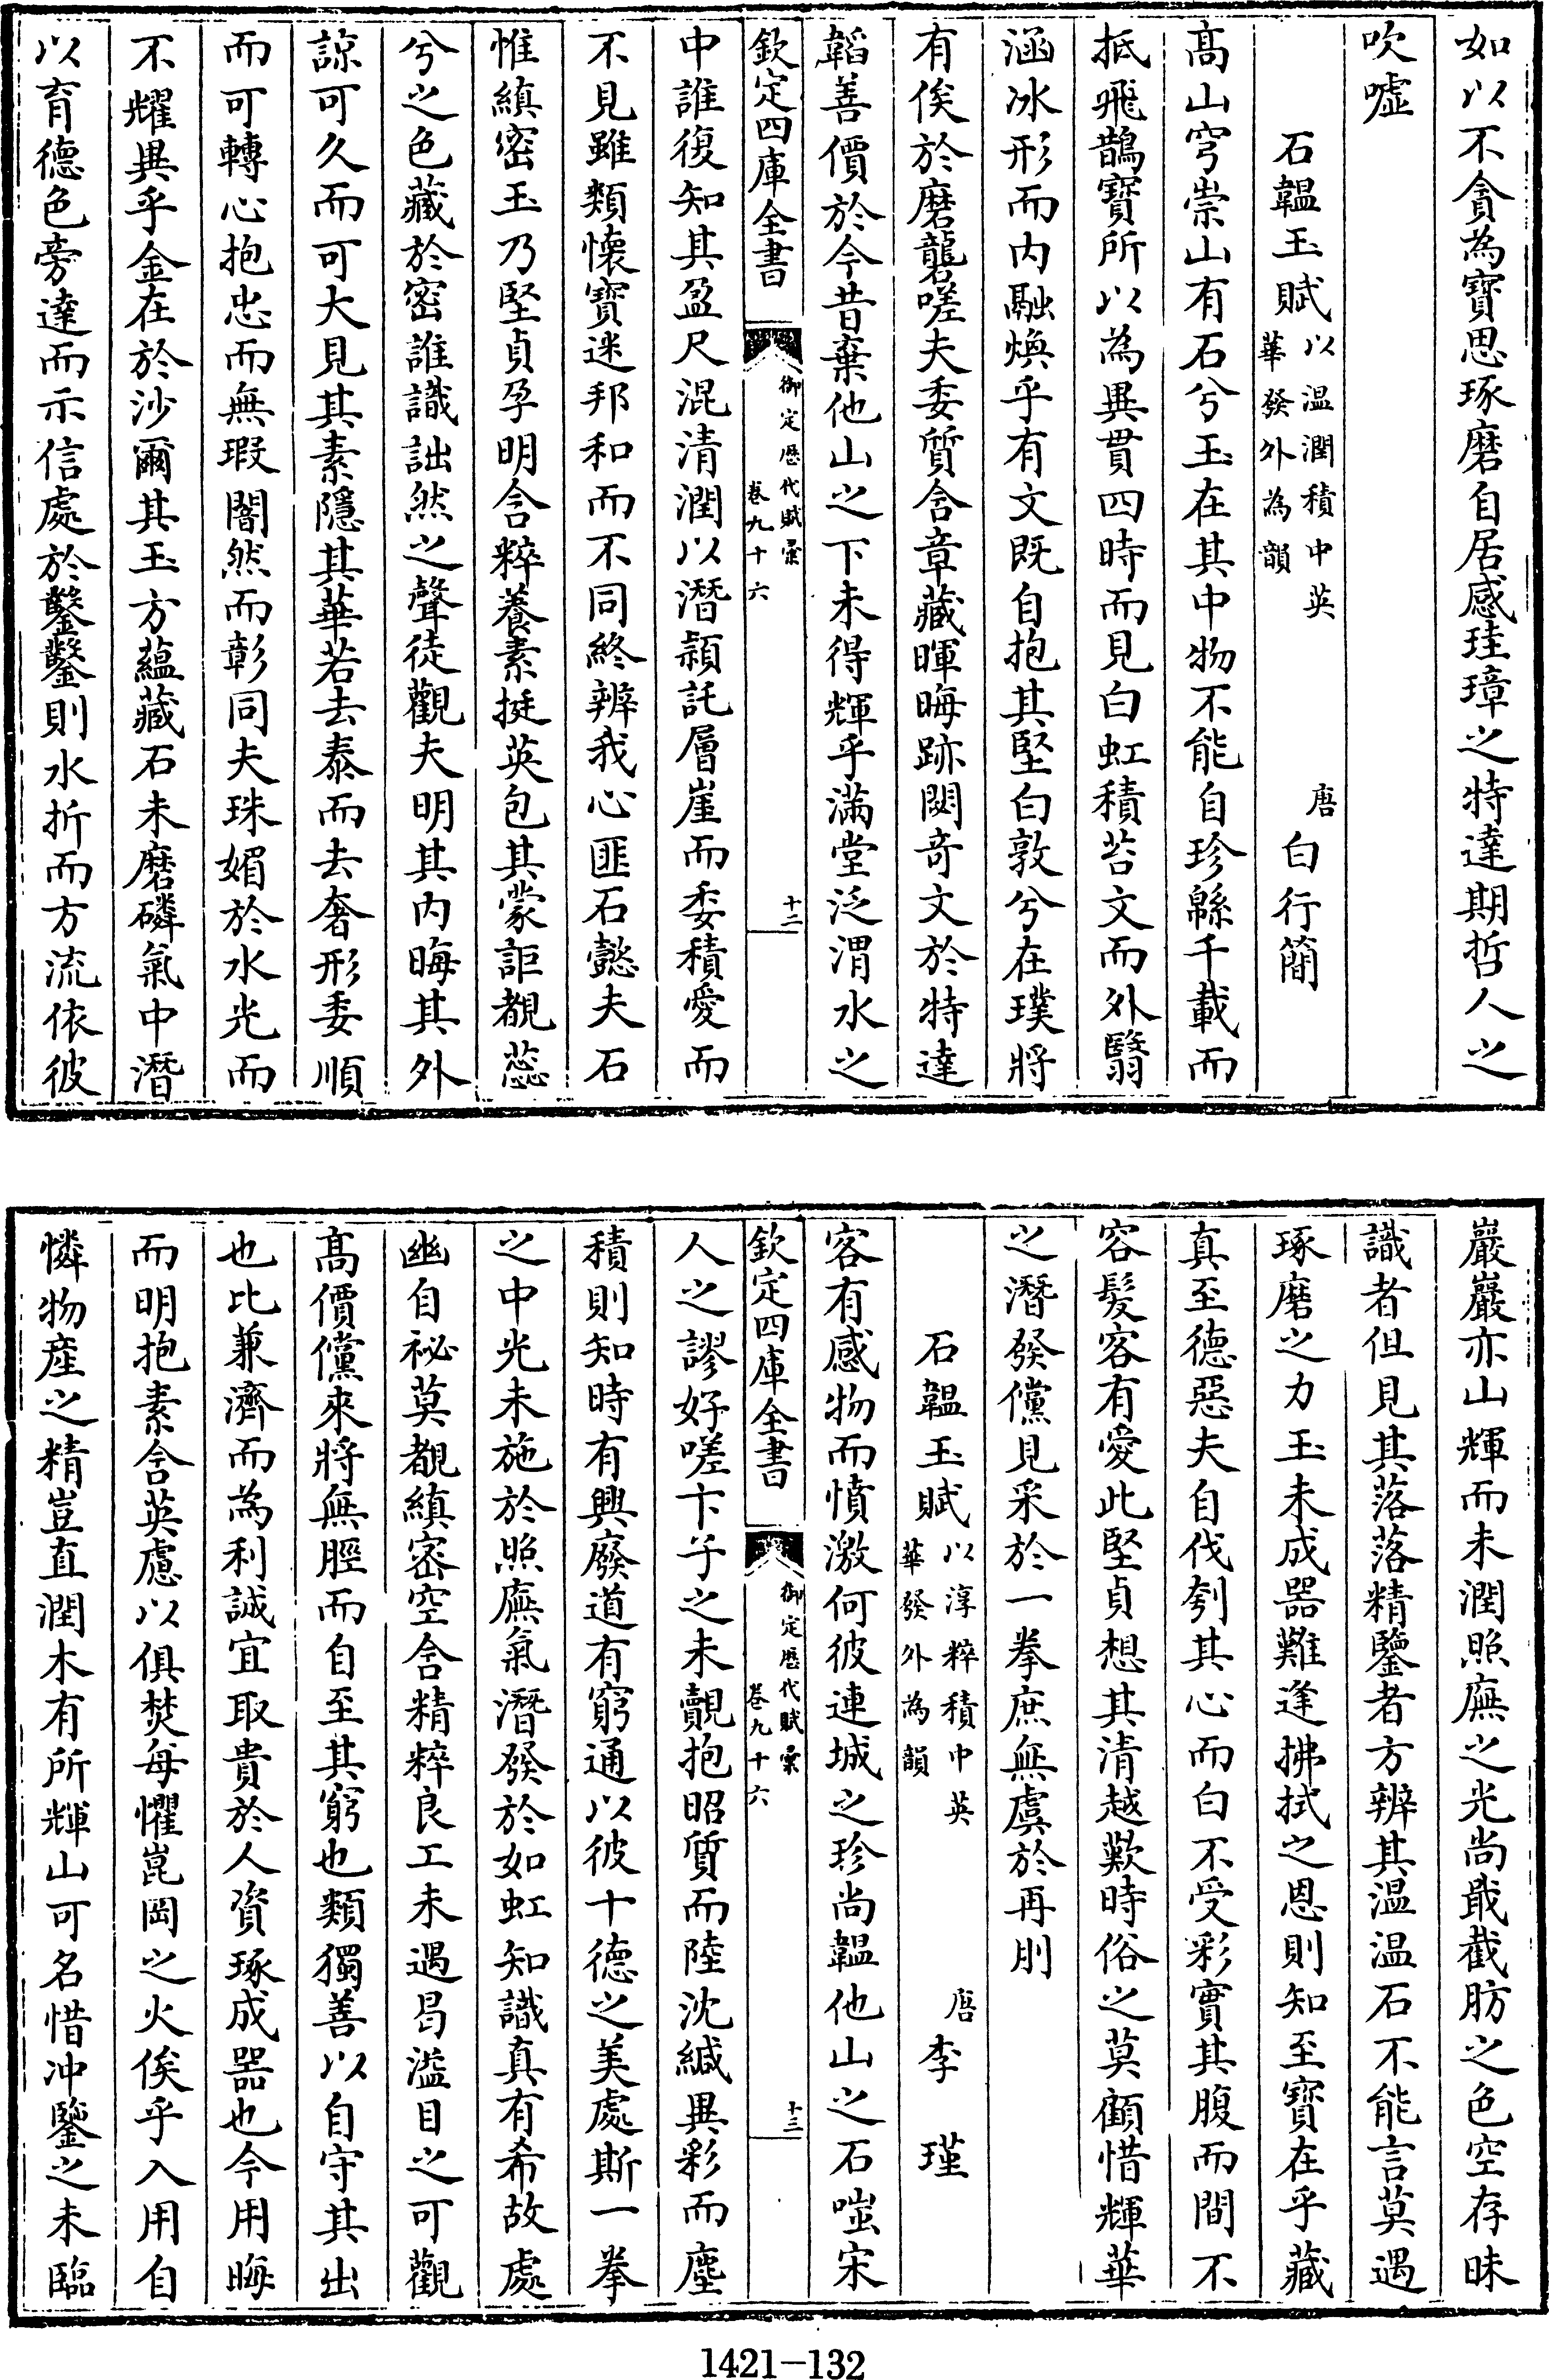 如以不貪為寶思琢磨自居感珪璋之特達期哲人之
吹噓
石韞玉賦以温潤積中英華發外為韻 唐白行簡
髙山穹崇山有石兮玉在其中物不能自珍緜千載而
抵飛鵲寳所以為異貫四時而見白虹積苔文而外翳
涵冰形而内融煥乎有文既自抱其堅白敦兮在璞將
有俟於磨礲嗟夫委質含章藏暉晦跡閟竒文於特達
韜善價於今昔棄他山之下未得輝乎滿堂泛渭水之
欽定四庫全書 御定歴代賦彚 卷九十六 十二
中誰復知其盈尺混清潤以潛頴託層崖而委積愛而
不見雖類懐寳迷邦和而不同終辨我心匪石懿夫石
惟縝密玉乃堅貞孕明含粹養素挺英包其蒙詎覩蕊
兮之色藏於密誰識詘然之聲徒觀夫明其内晦其外
諒可久而可大見其素隱其華若去泰而去奢形委順
而可轉心抱忠而無瑕闇然而彰同夫珠媚於水光而
不耀異乎金在於沙爾其玉方藴藏石未磨磷氣中潛
以育德色旁達而示信處於鑿鑿則水折而方流依彼
巖巖亦山輝而未潤照廡之光尚戢截肪之色空存昧
識者但見其落落精鑒者方辨其温温石不能言莫遇
琢磨之力玉未成器難逢拂拭之恩則知至寳在乎藏
真至德惡夫自伐刳其心而白不受彩實其腹而間不
容髮客有愛此堅貞想其清越歎時俗之莫顧惜輝華
之潛發儻見采於一拳庶無虞於再刖
石韞玉賦以淳粹積中英華發外為韻 唐李 瑾
客有感物而憤激何彼連城之珍尚韞他山之石嗤宋
欽定四庫全書 御定歴代賦彚 卷九十六 十三
人之謬好嗟卞子之未覿抱昭質而陸沈緘異彩而塵
積則知時有興廢道有窮通以彼十德之美處斯一拳
之中光未施於照廡氣潛發於如虹知識真有希故處
幽自祕莫覩縝宻空含精粹良工未遇曷溢目之可觀
髙價儻來將無脛而自至其窮也類獨善以自守其出
也比兼濟而為利誠宜取貴於人資琢成器也今用晦
而明抱素含英慮以俱焚每懼崑岡之火俟乎入用自
憐物産之精豈直潤木有所輝山可名惜沖鑒之未臨
1421-132